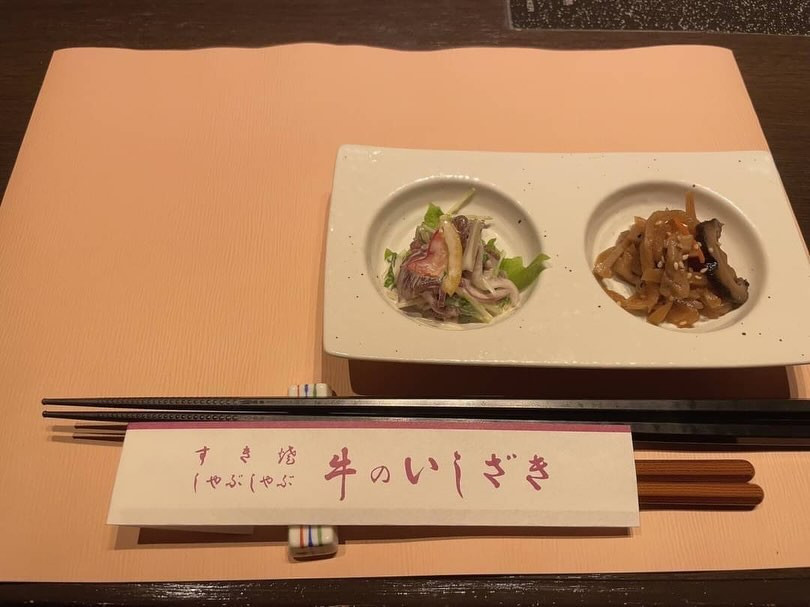 すき焼
しゃぶしゃぶ
牛のいしざき